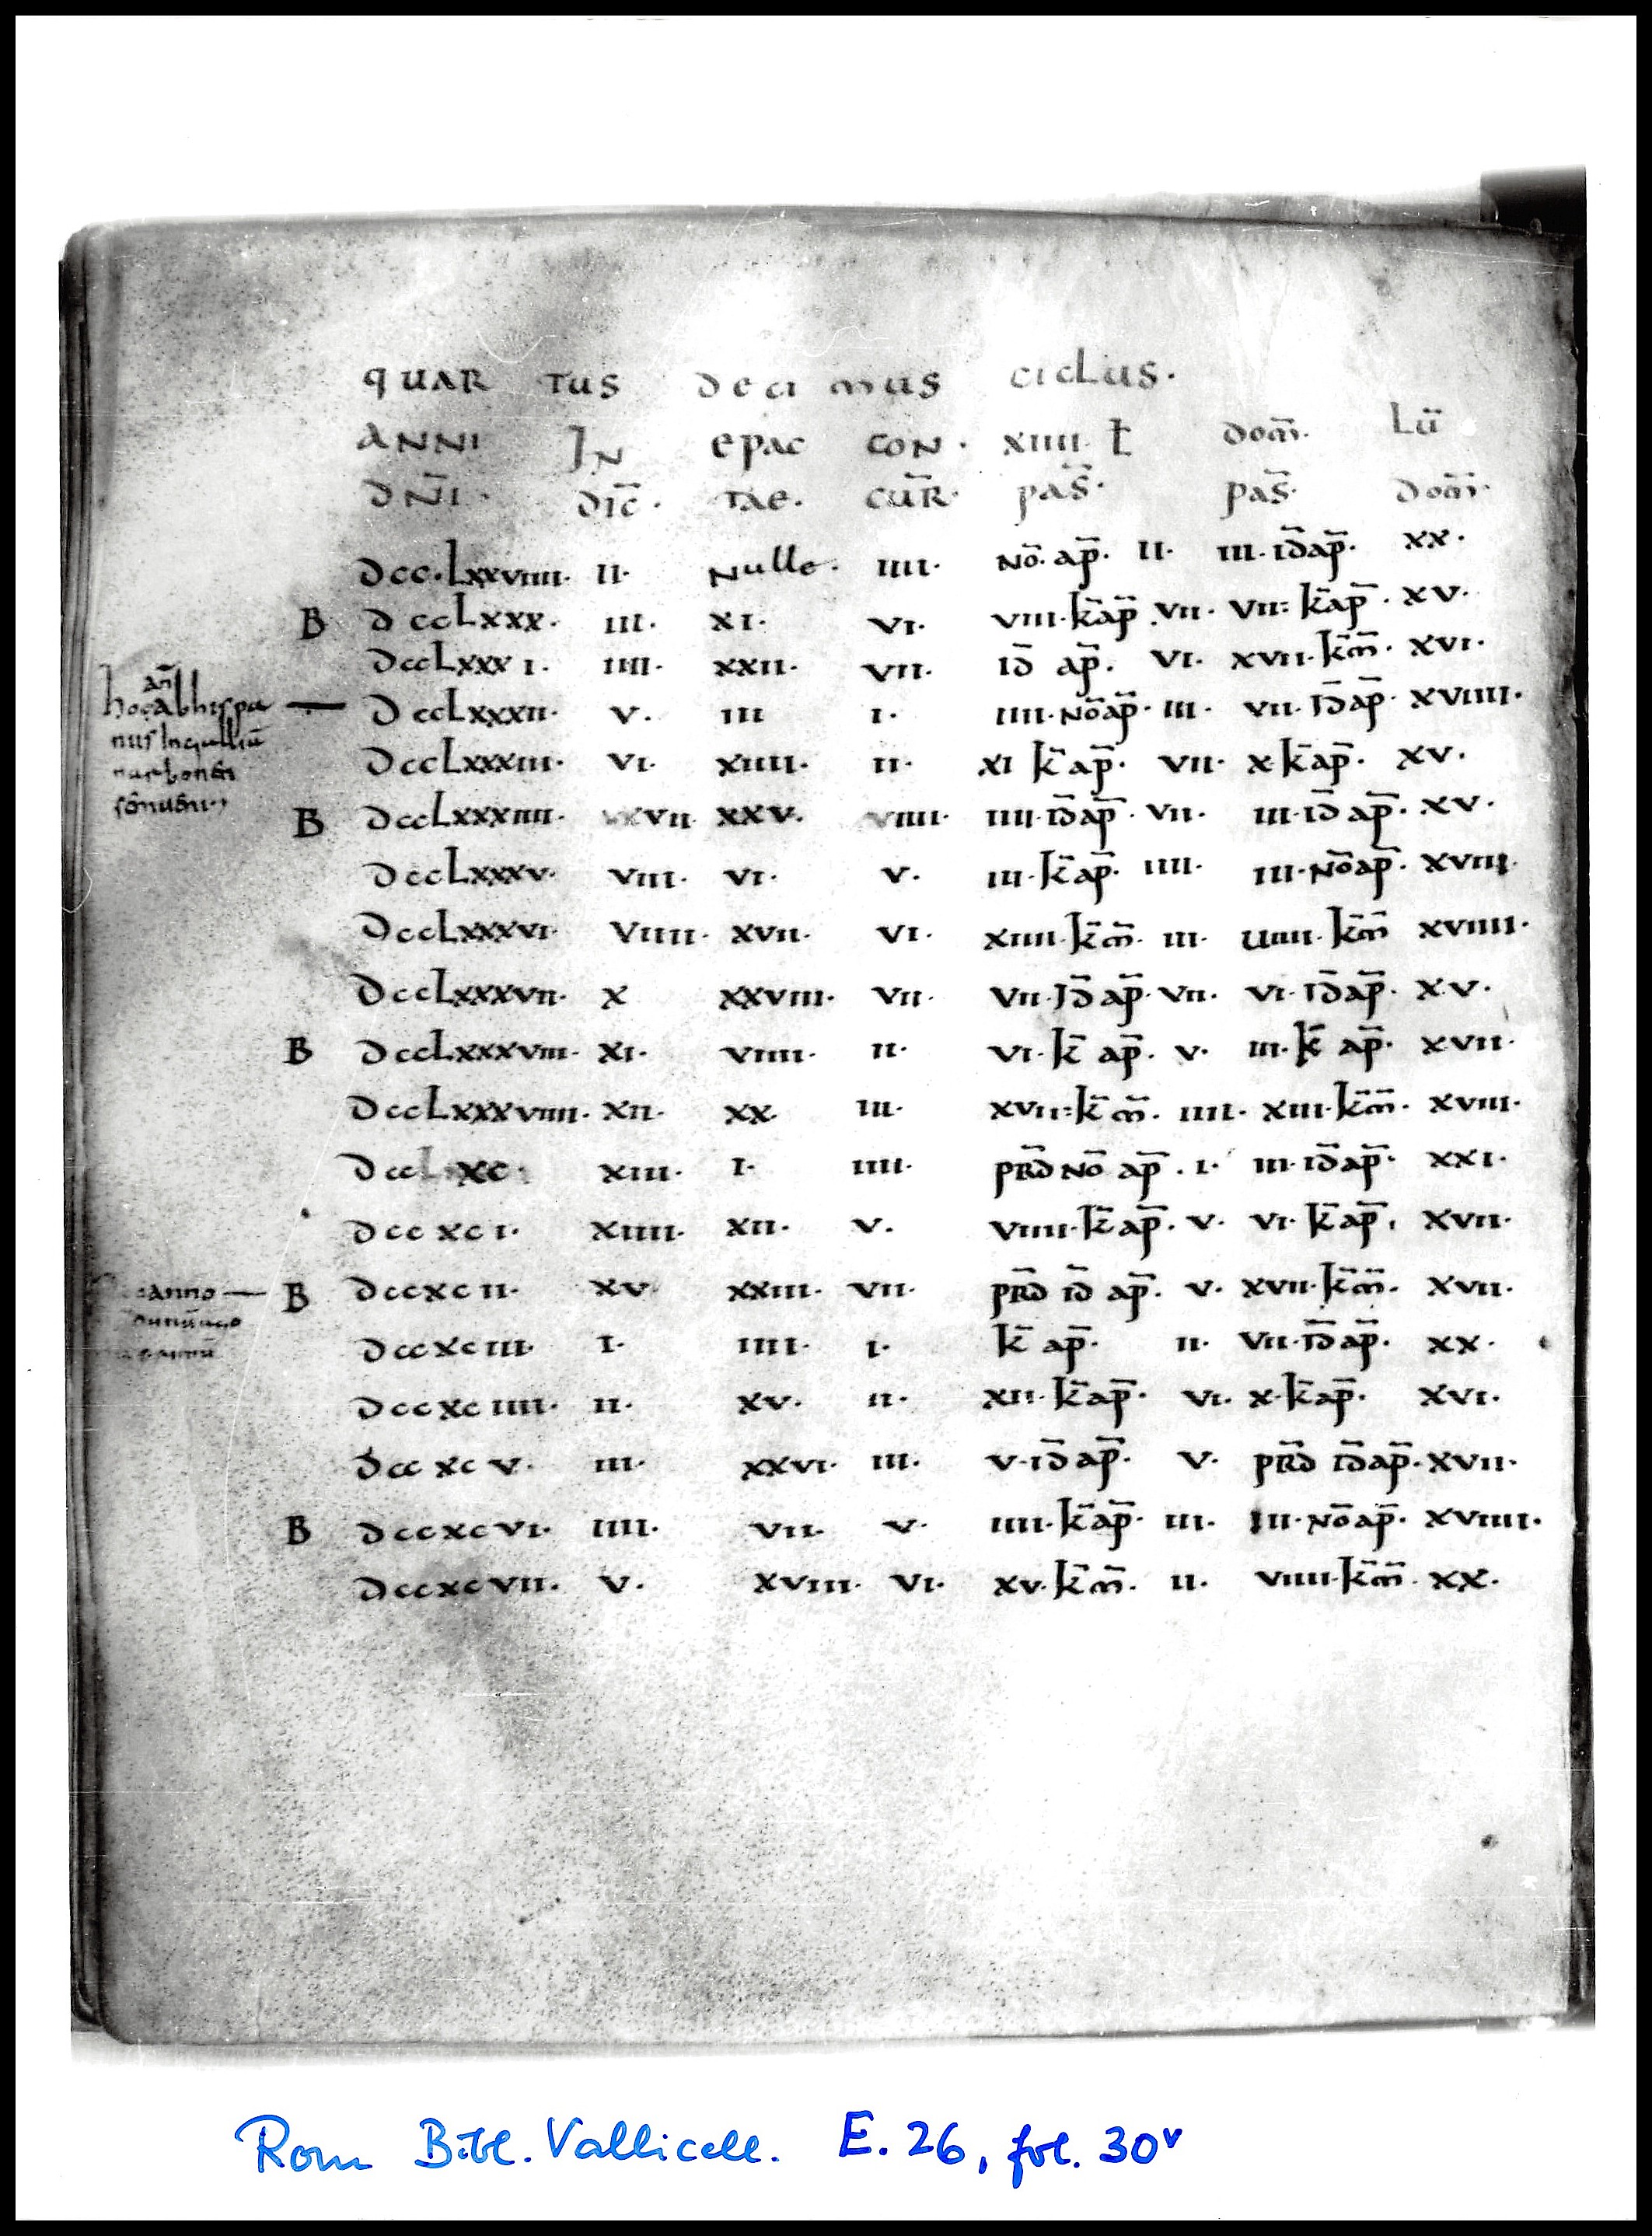 quartus decimus ciclus.
anni In epac con. xiiii ł dom̄. lū
dn̄i. dic̄. tae. cūr. pas̄. pas̄. dom̄.
dcc.lxxviiii. ii. nulle. iiii. nō. ap̄. ii. iii. id̄ ap̄. xx.
B dcclxxx. iii. xi. vi. viii. k̄ ap̄ vii. vii: k̄ ap̄. xv.
dcclxxxi. iiii. xxii. vii. id̄ ap̄. vi. xvii. k̄ m̄. xvi.
dcclxxxii. v. iii i. iiii. nō ap̄. iii. vii. id̄ ap̄. xviiii.
an̄
hoc abhispa
nus In gulliū
narbonēn
dcclxxxiii. vi. xiiii. ii. xi k̄ ap̄. vii. x. k̄ ap̄. xv.
B dcclxxxiiii. vii xxv. viiii. iiii. id̄ ap̄. vii. iii. id̄ ap̄. xv.
dcclxxxv. viii. vi. v. iii. k̄ ap̄. iiii. iii. nō ap̄. xviii.
dcclxxxvi. viiii. xvii. vi. xiiii. k̄ m̄. iii. uiiii. k̄ m̄ xviiii.
dcclxxxvii. x xxviii. vii. vii. id̄ ap̄. vii. vi. id̄ ap̄. xv.
B dcclxxxviii. xi. viiii. ii. vi. k̄ ap̄. v. iii. k̄ ap̄. xvii.
dcclxxxviiii. xii. xx. iii. xvii: k̄ m̄. iiii. xiii. k̄ m̄. xviii.
dccxc xiii. i. iiii. prd̄ nō ap̄. i. iii. id̄ ap̄. xxi.
dccxci. xiiii. xii. v. viiii. k̄ ap̄. v. vi. k̄ ap̄. xvii.
anno B dccxcii. xv. xxiii. vii. prd̄ id̄ ap̄. v. xvii. k̄ m̄. xvii.
dccxciii. i. iiii. i. k̄ ap̄. ii. vii. id̄ ap̄. xx.
dccxciiii. ii. xv. ii. xii. k̄ ap̄. vi. x. k̄ ap̄. xvi.
dccxcv. iii. xxvi. iii. v. id̄ ap̄. v. prd̄ id̄ ap̄. xvii.
B dccxcvi. iiii. vii. v. iiii. k̄ ap̄. iii. iii. nō ap̄. xviiii.
dccxcvii. v. xviii. vi. xv. k̄ m̄. ii. viiii. k̄ m̄. xx.
Rom Bibl. Vallicell. E. 26, fol. 30v